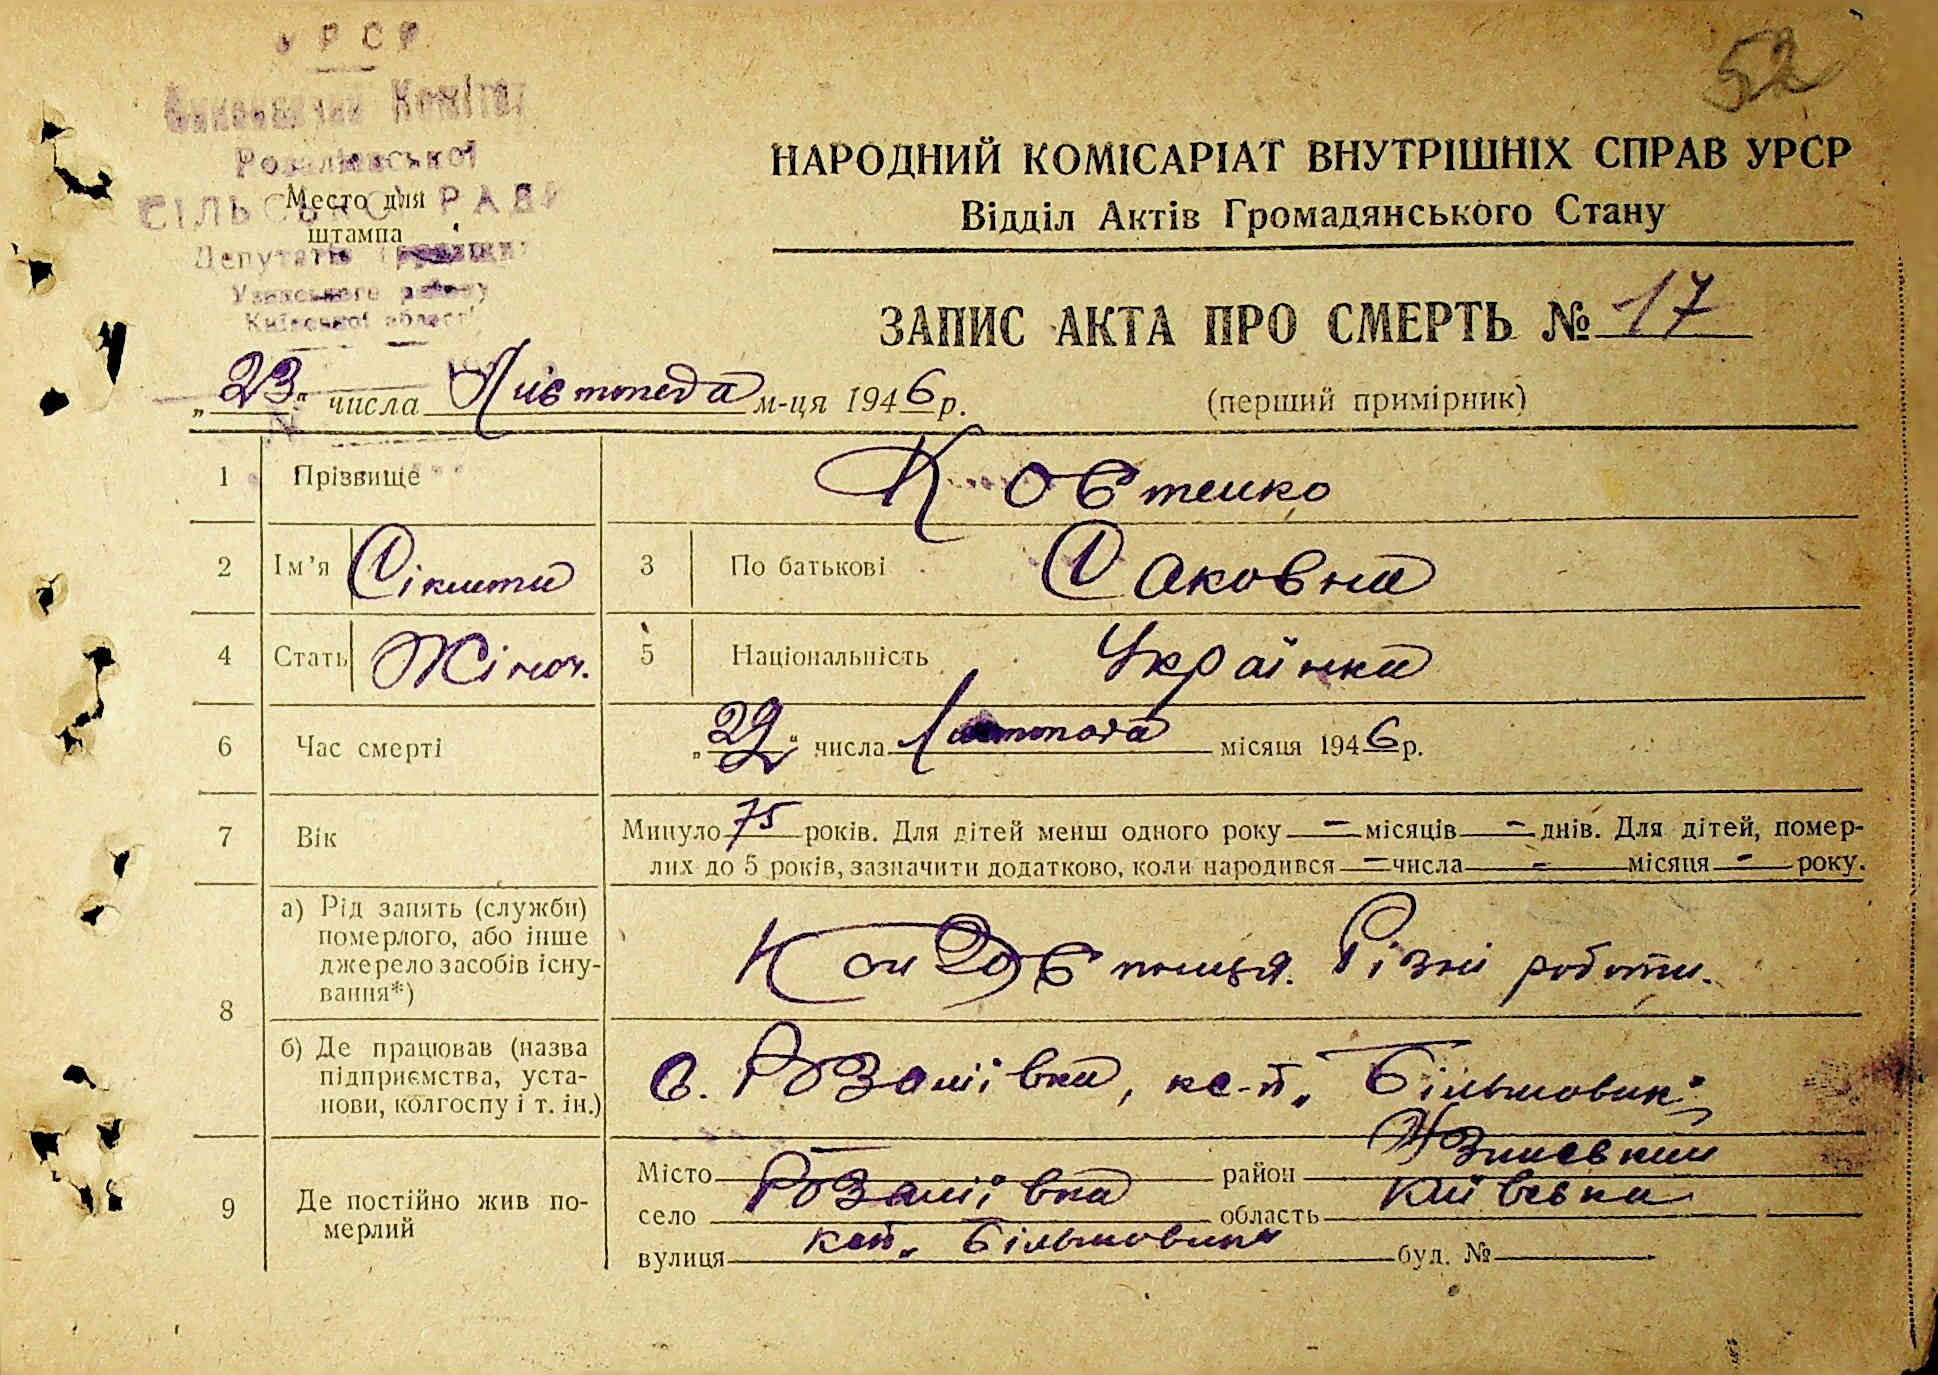 52
УРСР
Виконавчий Комітет
Розаліївської
СІЛЬСЬКОЇ РАДИ
Депутатів Трудящих
Узинського району
Київської області
Место для
штампа
НАРОДНИЙ КОМІСАРІАТ ВНУТРІШНІХ СПРАВ УРСР
Відділ Актів Громадянського Стану
ЗАПИС АКТА ПРО СМЕРТЬ № 17
„23“ числа Листопада м-ця 1946 р.
(перший примірник)
1 Прізвище Ковтенко
2 Ім’я 3 По батькові Саковна
4 Стать Жіноч. 5 Національність Українка
6 Час смерті „22“ числа Листопада місяця 1946 р.
7 Вік Минуло 75 років. Для дітей менш одного року — місяців — днів. Для дітей, помер-
лих до 5 років, зазначити додатково, коли народився — числа — місяця — року.
8 а) Рід занять (служби)
померлого, або інше
джерело засобів існу-
вання*)
Колгоспниця. Різні роботи.
б) Де працював (назва
підприємства, уста-
нови, колгоспу і т. ін.)
с. Розаліївка, к-п „Більшовик“
9 Де постійно жив по-
мерлий
Місто район Узинський
село Розаліївка область Київська
вулиця к-п „Більшовик“ буд. №